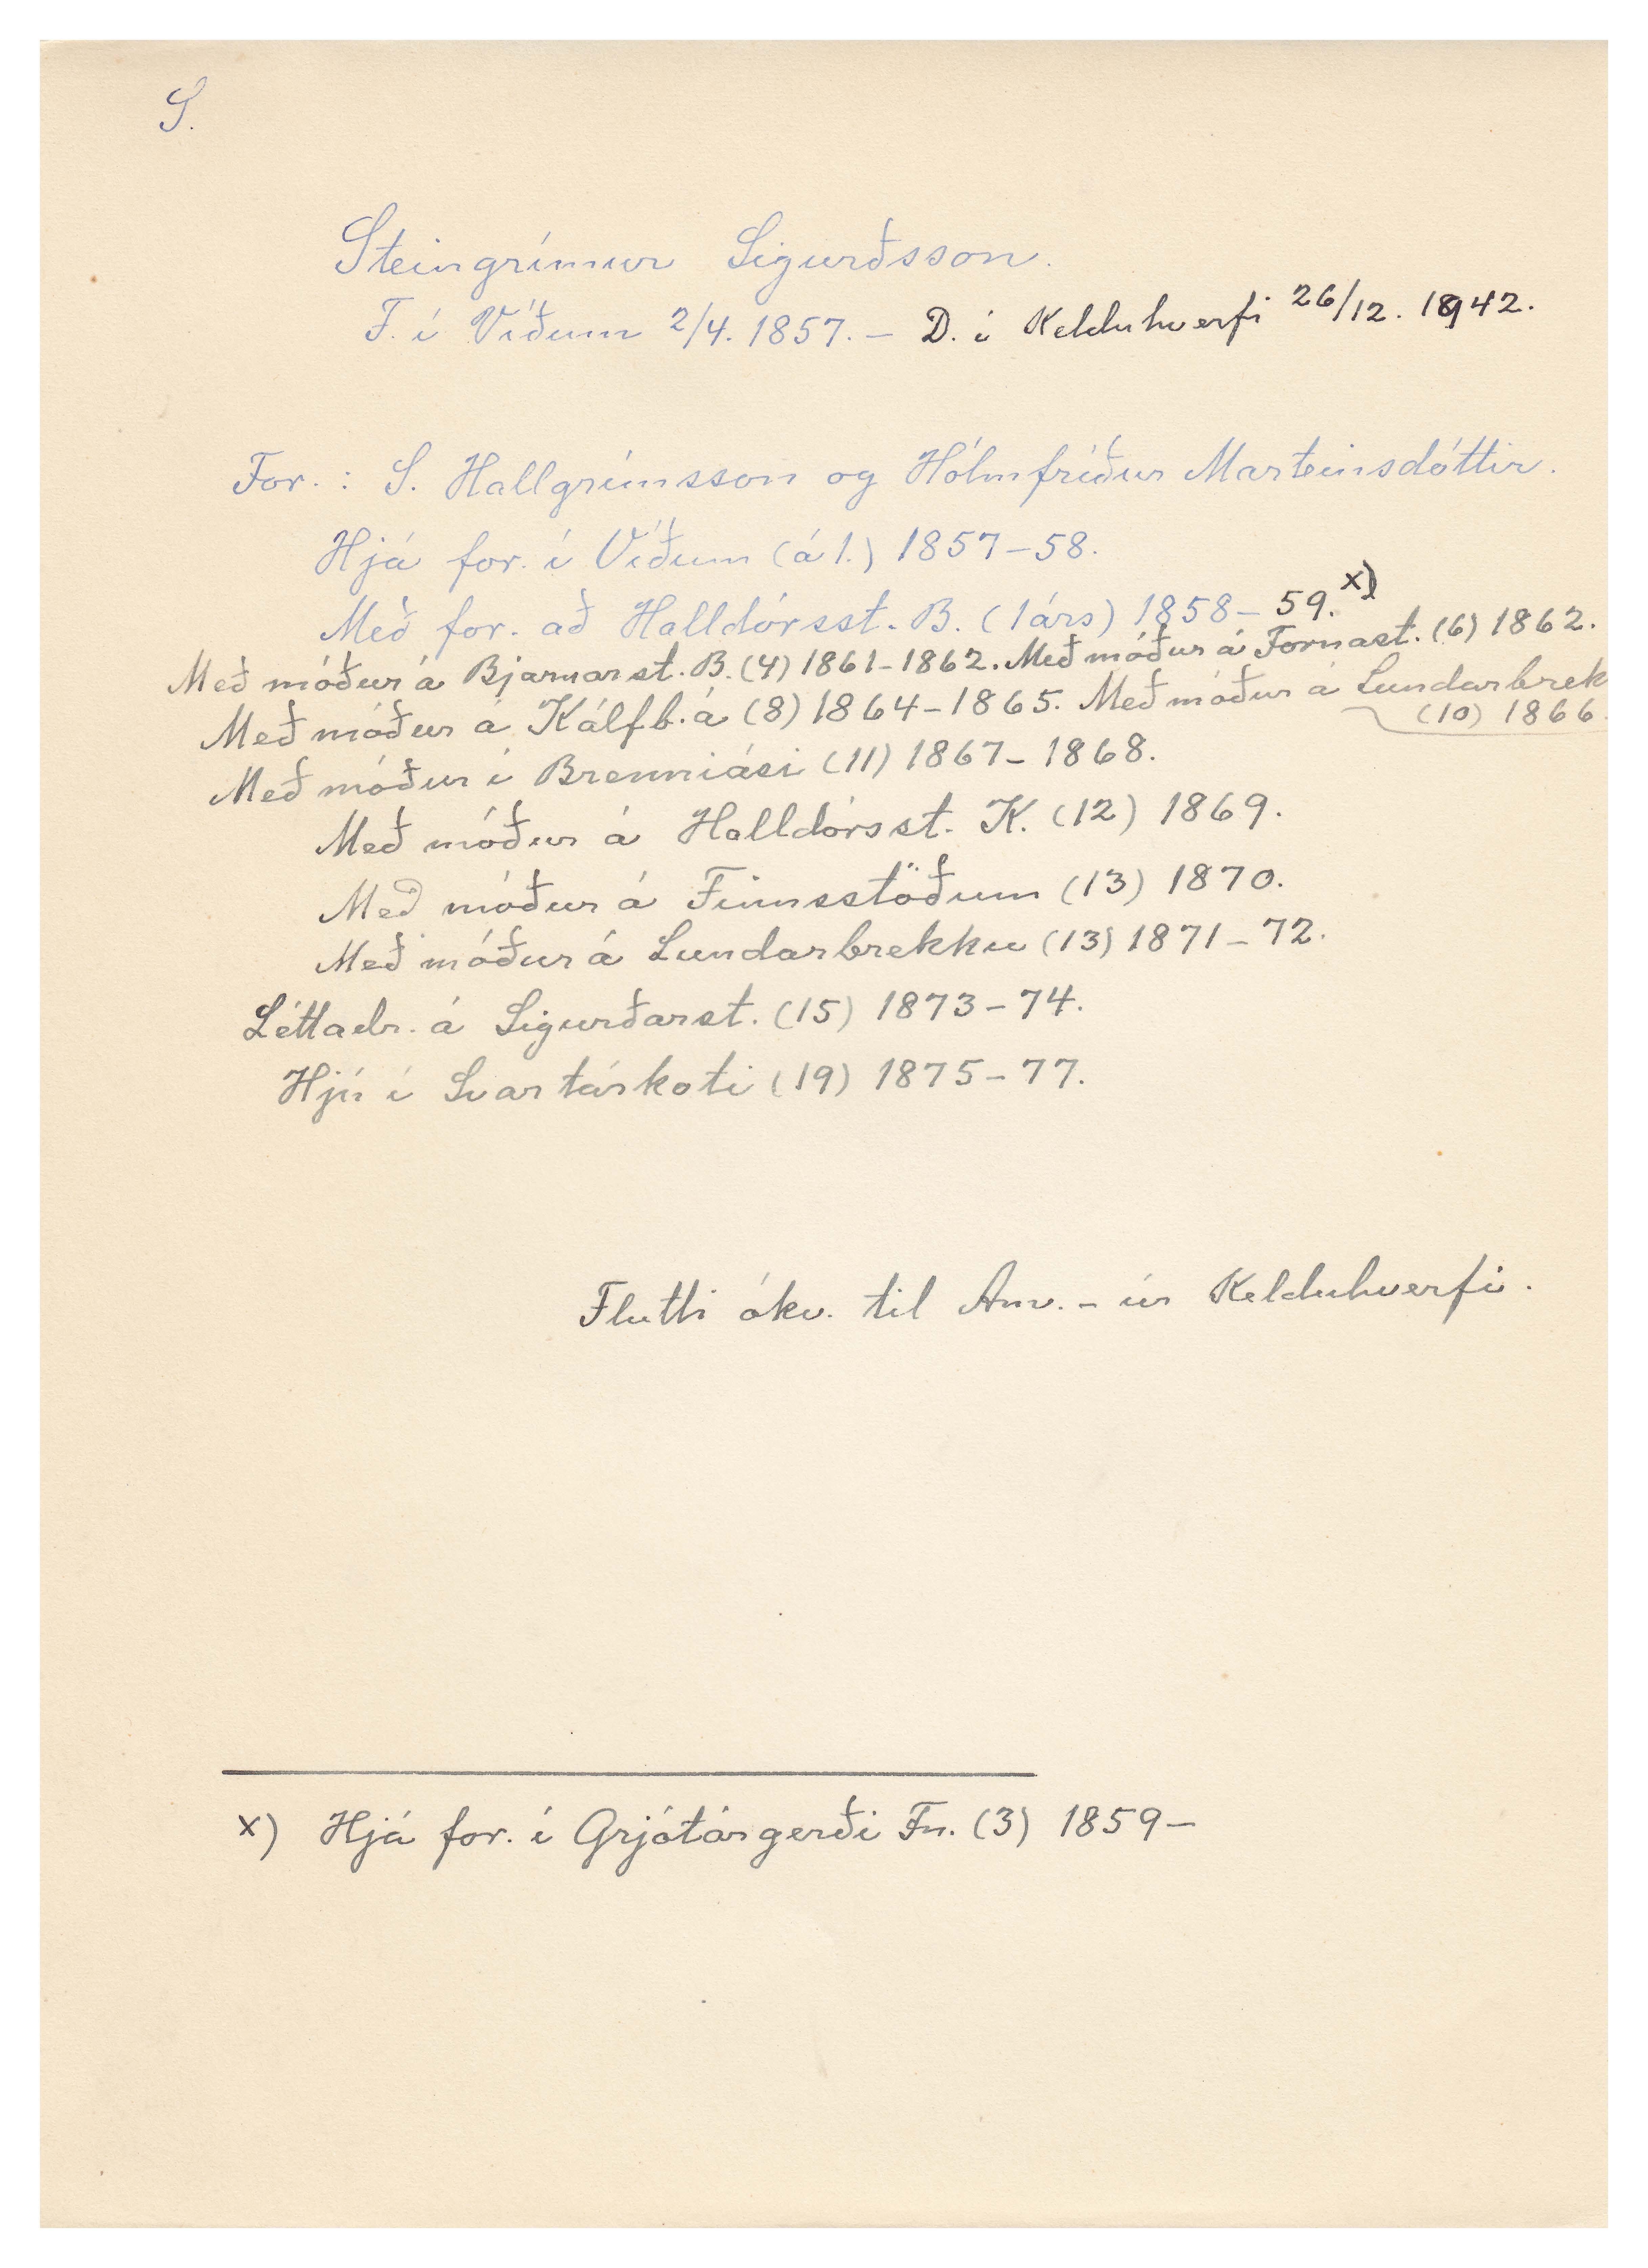 S.
Steingrímur Sigurðsson.
F. í Víðum 2/4. 1857. – D. í Kelduhverfi 26/12. 1942.
For. : S. Hallgrímsson og Hólmfríður Marteinsdóttir.
Hjá for. í Víðum (á 1.) 1857–58.
Með for. að Halldórsst. B. (1 árs) 1858– 59. x)
Með móður á Bjarnarst. B. (4) 1861–1862. Með móður á Fornast. (6) 1862.
Með móður á Kálfb.á (8) 1864–1865. Með móður á Lundarbrek
(10) 1866.
Með móður í Brenniási (11) 1867– 1868.
Með móður á Halldórsst. K. (12) 1869.
Með móður á Finnsstöðum (13) 1870.
Með móður á Lundarbrekku (13) 1871– 72.
Léttadr. á Sigurðarst. (15) 1873–74.
Hjú í Svartárkoti (19) 1875–77.
Flutti ókv. til Am. – úr Kelduhverfi.
x) Hjá for. í Grjótárgerði Fn. (3) 1859–